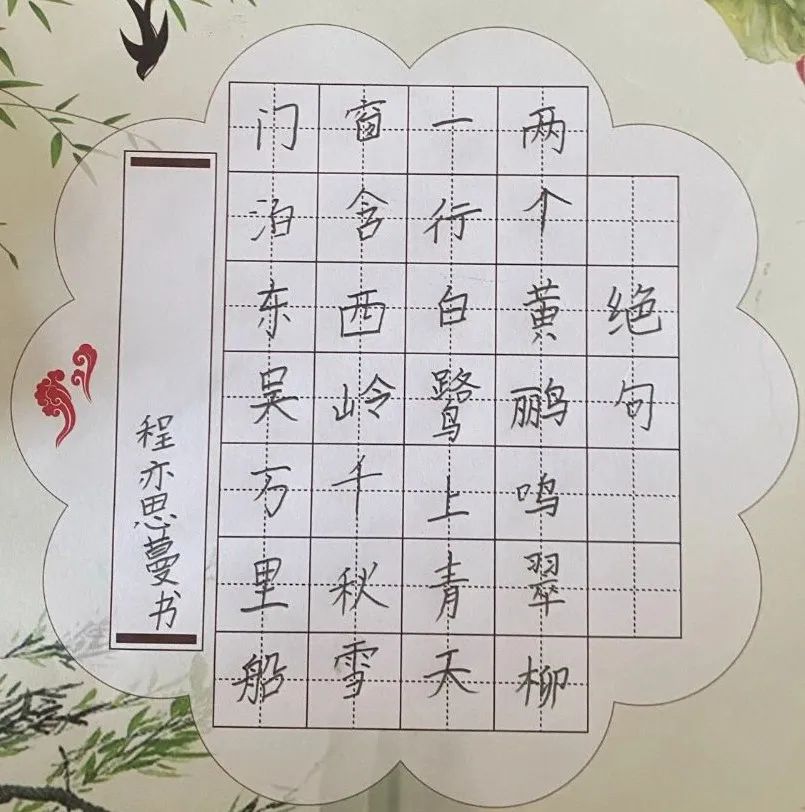 绝句
两个黄鹂鸣翠柳
一行白鹭上青天
窗含西岭千秋雪
门泊东吴万里船
程亦思蔓书